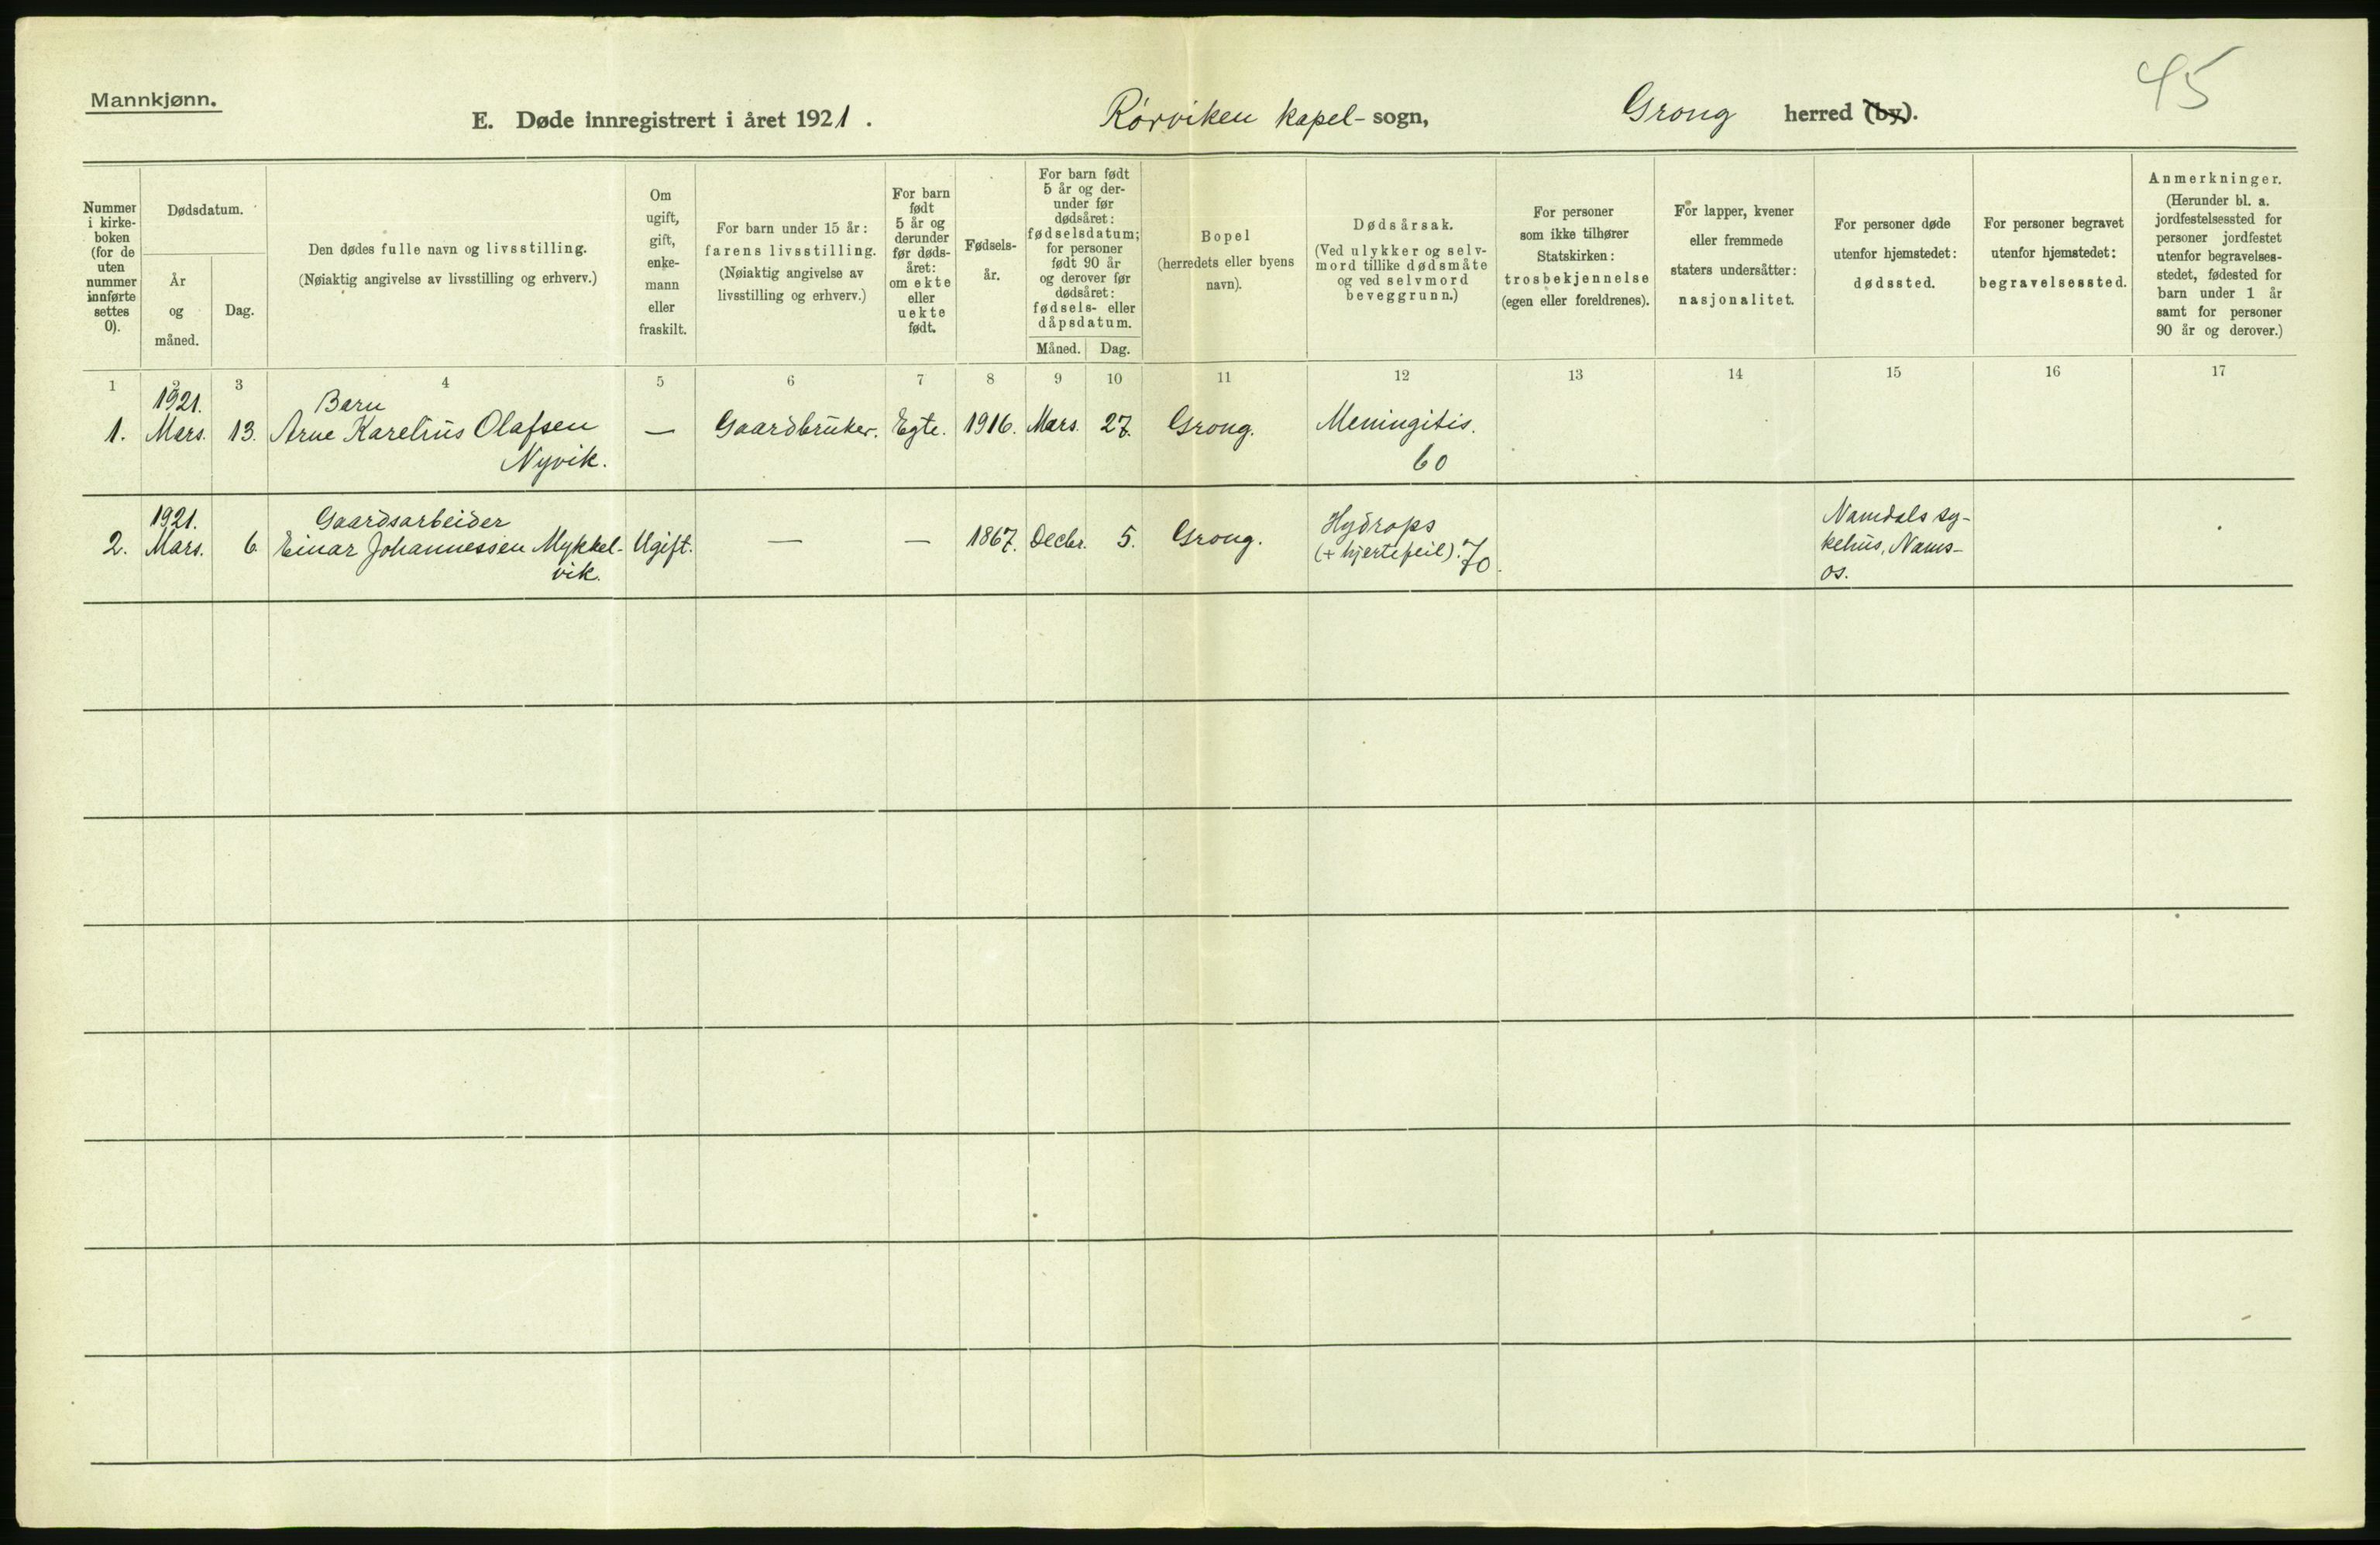 45
Mannkjønn.
E. Døde innregistrert i året 1921. Rórviken kapel-sogn, Grong herred (by).
Nummer i kirke-boken (for de uten nummer innførte settes 0).
Dødsdatum.
År og måned.
Dag.
Den dødes fulle navn og livsstilling.
(Nøiaktig angivelse av livsstilling og erhverv.)
Om ugift, gift, enke-mann eller fraskilt.
For barn under 15 år:
farens livsstilling.
(Nøiaktig angivelse av
livsstilling og erhverv.)
For barn født 5 år og derunder før døds-året: om ekte eller uekte født.
Fødsels-år.
For barn født 5 år og der-under før dødsåret: fødselsdatum; for personer født 90 år og derover før dødsåret: fødsels- eller dåpsdatum.
Måned. Dag.
Bopel
(herredets eller byens
navn).
Dødsårsak.
(Ved ulykker og selv-
mord tillike dødsmåte
og ved selvmord
beveggrunn.)
For personer
som ikke tilhører
Statskirken:
trosbekjennelse
(egen eller foreldrenes).
For lapper, kvener
eller fremmede
staters undersåtter:
nasjonalitet.
For personer døde
utenfor hjemstedet:
dødssted.
For personer begravet
utenfor hjemstedet:
begravelsessted.
Anmerkninger.
(Herunder bl. a.
jordfestelsessted for
personer jordfestet
utenfor begravelses-
stedet, fødested for
barn under 1 år
samt for personer
90 år og derover.)
1 2 3 4 5 6 7 8 9 10 11 12 13 14 15 16 17
1921. Barn
1. Mars. 13. Arne Karelius Olafsen — Gaardbruker. Egte. 1916. Mars. 27. Grong. Meningitis.
Nyvik. 60
1921. Gaardsarbeider Hydrops Namdals sy-
2. Mars. 6. Einar Johannessen Mykkel- Ugift. — — 1867. Decbr. 5. Grong. (+ hjertefeil). 70. kehus, Nams-
vik. os.